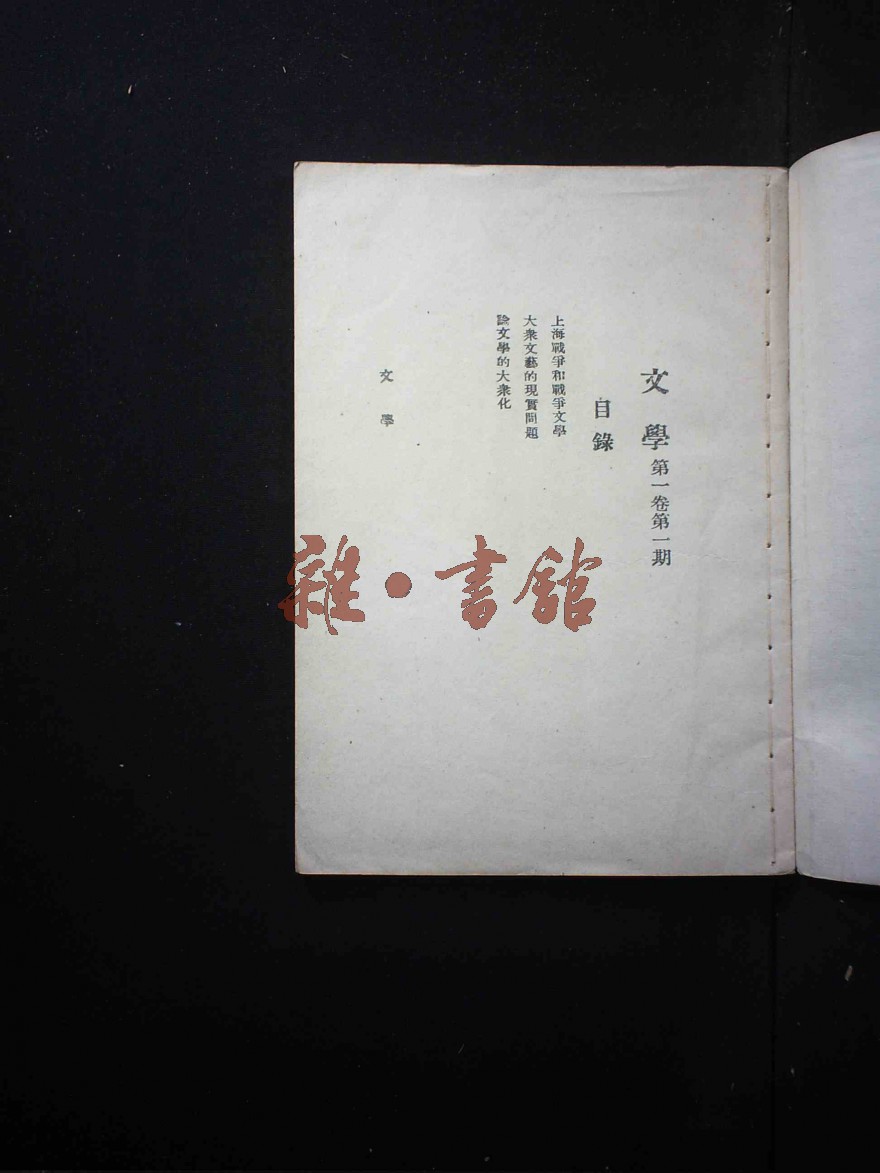 文學 第一卷第一期
目錄
上海戰爭和戰爭文學
大衆文藝的現實問題
論文學的大衆化
文學
雜·書館